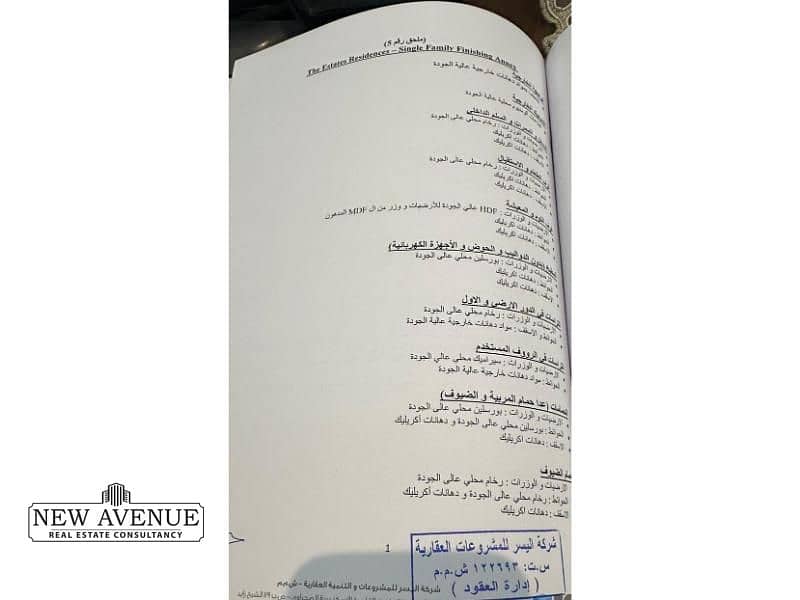 (ملحق رقم 5)
The Estates Residences – Single Family Finishing Annex
مواد دهانات خارجية عالية الجودة
الوميتال محلية عالية الجودة
و الممرات و السلم الداخلي
الارضيات و الوزرات : رخام محلي عالى الجودة
الحوائط : دهانات اكريليك
الاسقف : دهانات اكريليك
و الاستقبال
الارضيات و الوزرات : رخام محلي عالى الجودة
الحوائط : دهانات اكريليك
الاسقف : دهانات اكريليك
غرف النوم و المعيشة
الارضيات و الوزرات : HDF عالي الجودة للأرضيات و وزر من ال MDF المدهون
الحوائط : دهانات اكريليك
الاسقف : دهانات اكريليك
(بدون الدواليب و الحوض و الأجهزة الكهربائية)
الارضيات و الوزرات : بورسلين محلي عالى الجودة
الحوائط : دهانات اكريليك
الاسقف : دهانات اكريليك
التراسات في الدور الارضي و الاول
الارضيات و الوزرات : رخام محلي عالى الجودة
الحوائط و الاسقف : مواد دهانات خارجية عالية الجودة
التراسات في الرووف المستخدم
الارضيات و الوزرات : سيراميك محلي عالي الجودة
الحوائط : مواد دهانات خارجية عالية الجودة
الحمامات (عدا حمام المربية و الضيوف)
الارضيات و الوزرات : بورسلين محلي عالى الجودة
الحوائط : بورسلين محلي عالى الجودة و دهانات أكريليك
الاسقف : دهانات اكريليك
حمام الضيوف
الارضيات و الوزرات : رخام محلي عالى الجودة
الحوائط : رخام محلي عالى الجودة و دهانات أكريليك
الاسقف : دهانات اكريليك
1
شركة اليسر للمشروعات العقارية
س.ت: ١٢٢٦٩٣ ش.م.م
( إدارة العقود )
شركة اليسر للمشروعات و التنمية العقارية - ش.م.م
NEW AVENUE
REAL ESTATE CONSULTANCY